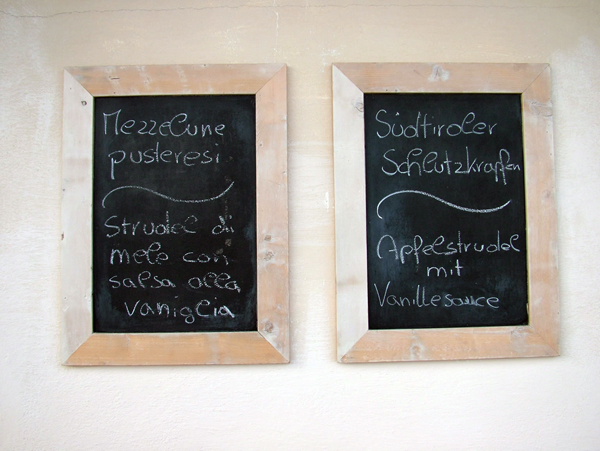 Mezzelune
pusteresi
Strudel di
mele con
salsa alla
vaniglia
Südtiroler
Schlutzkrapfen
Apfelstrudel
mit
Vanillesauce